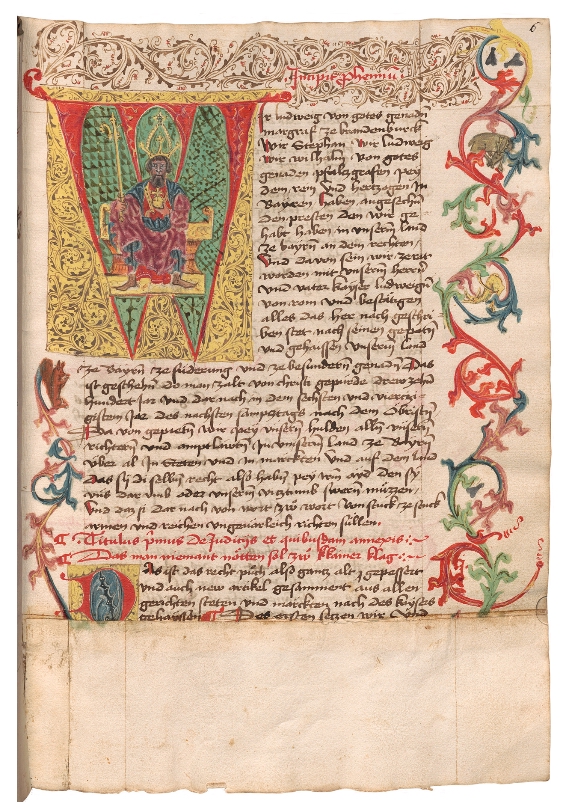 6
Incipit prohemiu
Ir ludweig von gotes genadn
margraf ze brandenburck
wir Stephan wir ludweig
wir wilhalm von gotes
genaden pfaltzgrafen pey
dem rein Und hertzogen In
Bayren haben angesechn
den presten den wir ge
habt haben in unserm land
ze bayrn an dem rechten
Und davon sein wir ze rat
worden mit unserm herrn
und vater kayser ludwegn
von rom und bestätigen
alles das her nach geschri
ben stet nach seinem gepotn
und gehaissen unserm land
cze bayrn cze fuderung und ze besundern genadn Das
ist geschehn do man czalt von christi gepurde drewzehn
hundert Jar und dar nach in dem sechsten und viertzi
gistem Jar des nachsten sampztags nach dem Obristn
Da von gepietn wir pey unsern hulden alln unsern
richtern und amptlawtn In unserm land ze Bayrn
über al In steten und in marckten Und auf dem land
das sy die selbn recht also habn pey irn ayd den sy
uns dar umb oder unserm viztumb swern müzzen
Und daz si dar nach von wort zw wort von stuck ze stuck
armen und reichen ungeuarleich richten süllen
Titulus primus de Judicijs et quibusdam annexis
Das man niemant nötten sol zw klainer klag
Das ist das recht puch also gantz alt gepessert
und auch new artikel gesammet aus allen
gerichten steten und marckten nach des kayses
gehayssen Des ersten setzen wir Und